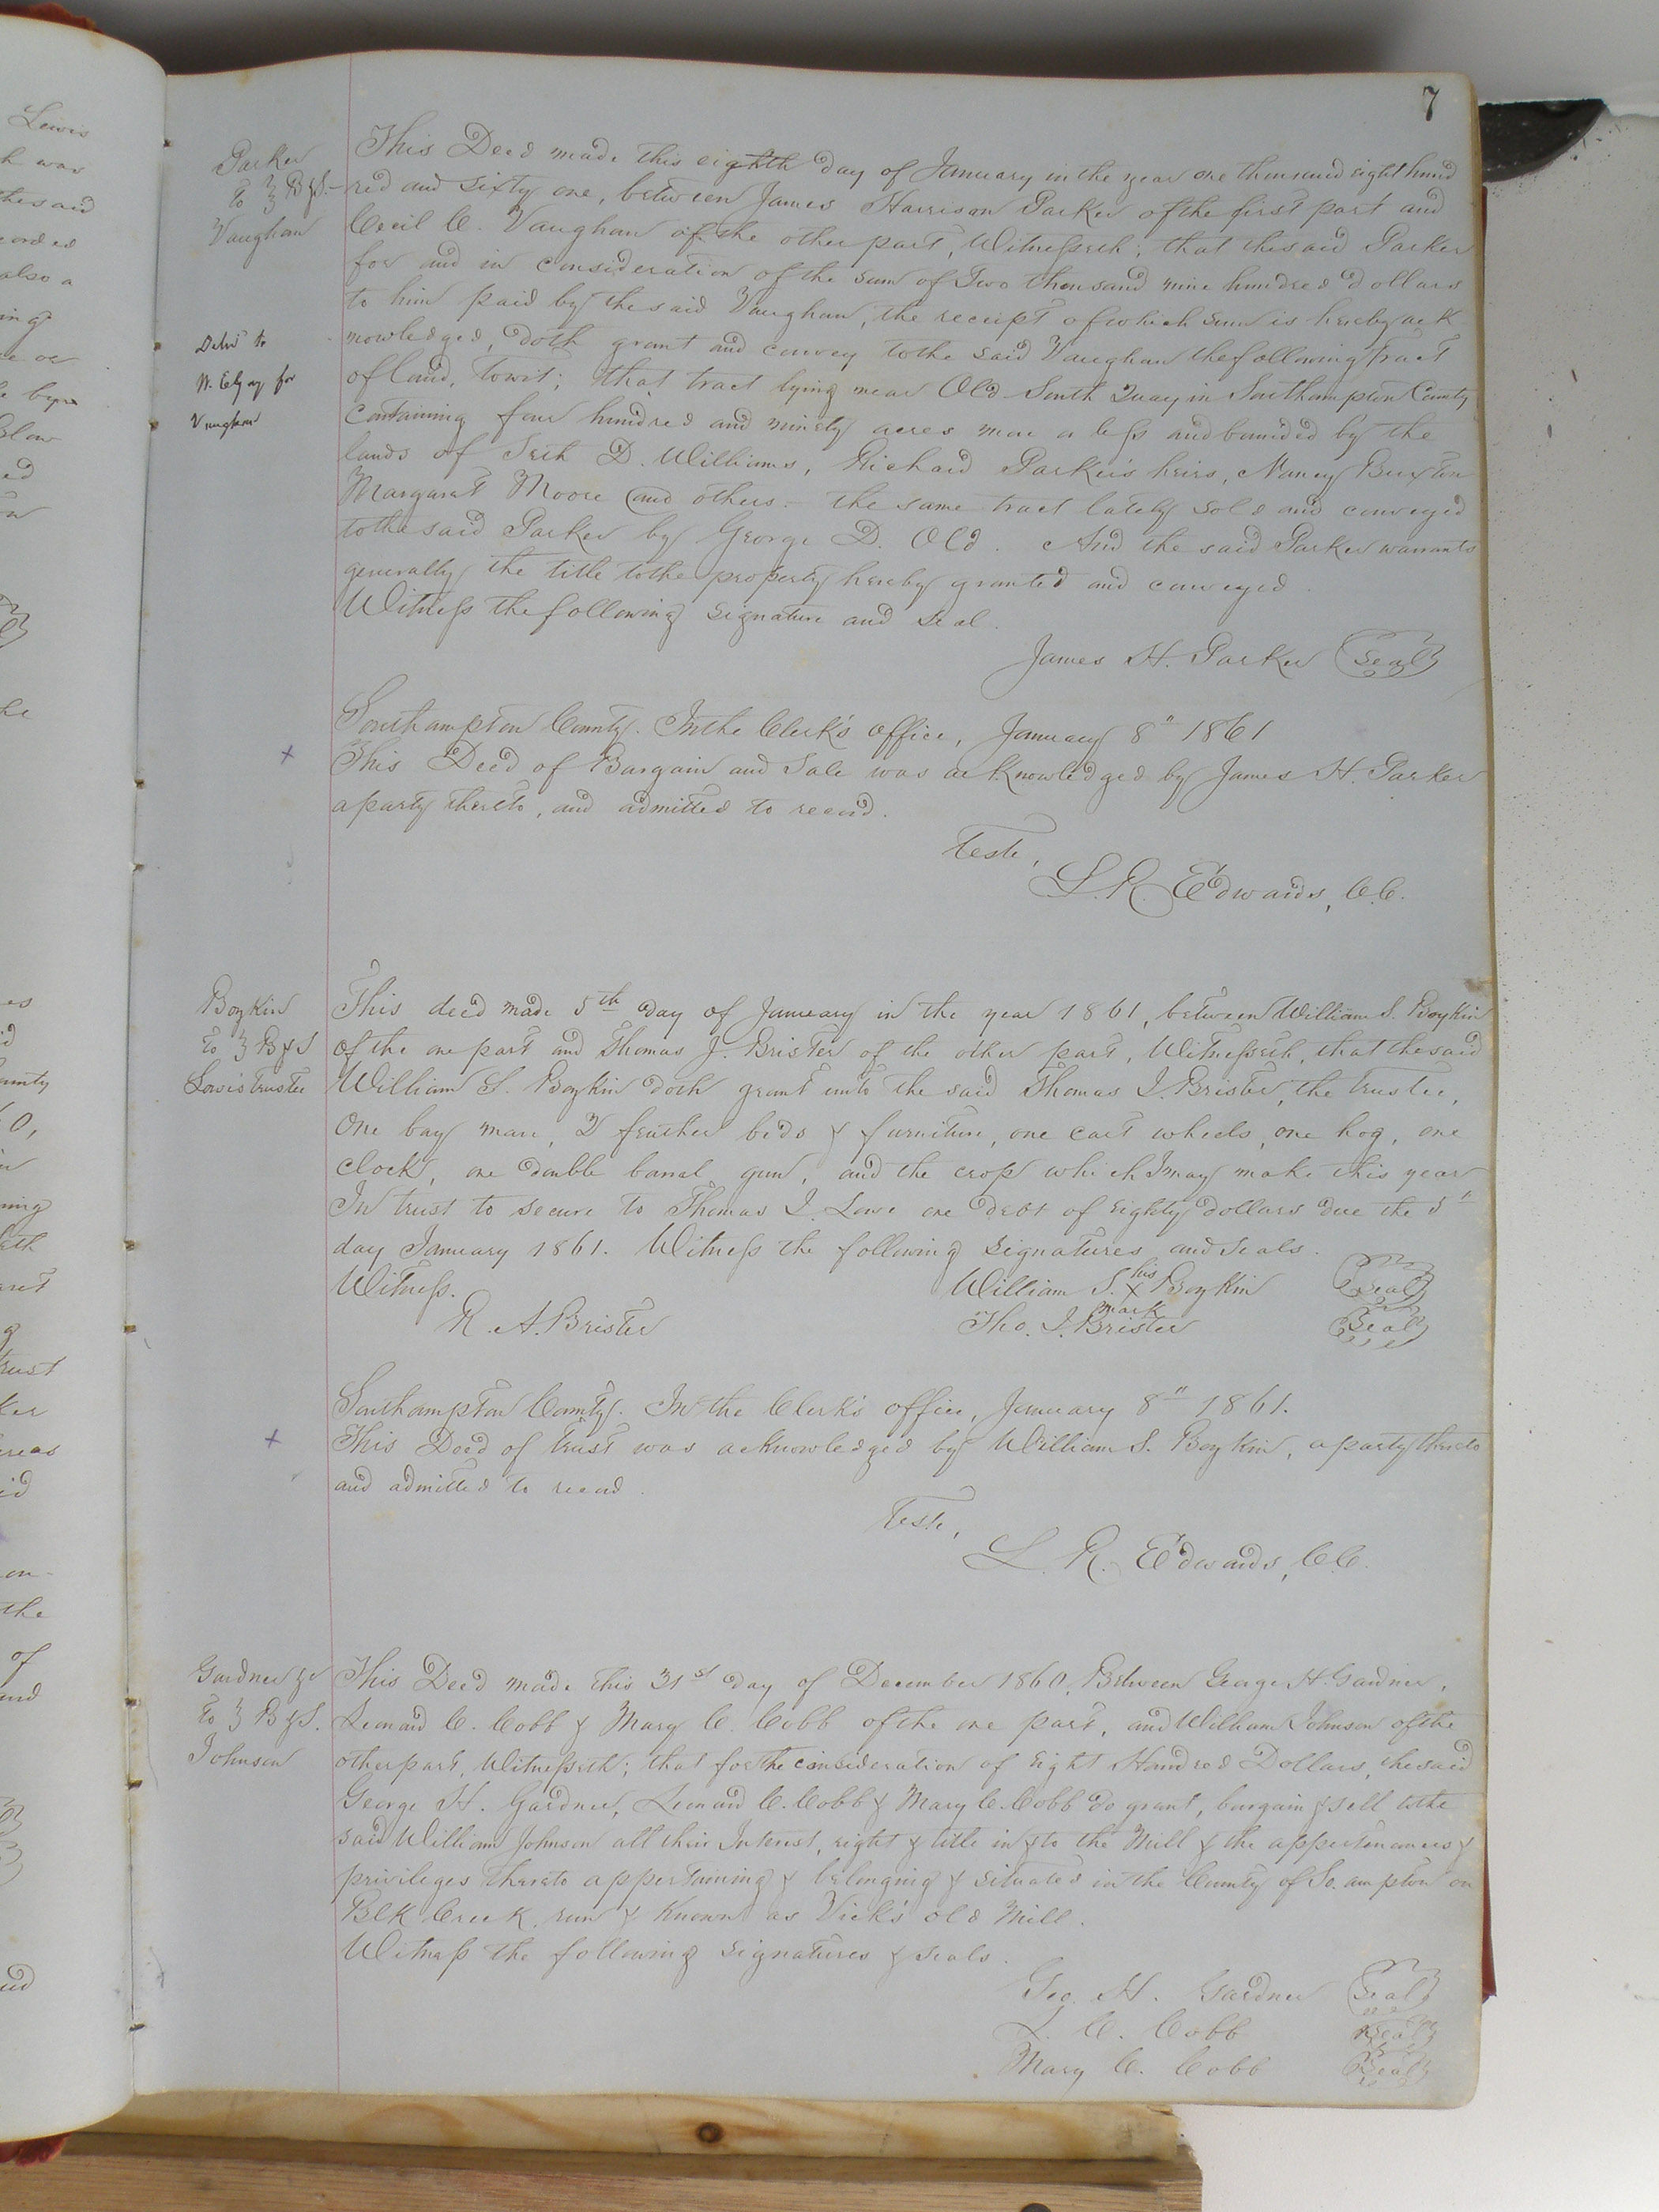 7
Parker
to } B&S.
Vaughan
This Deed made this eighth day of January in the year one thousand eight hund
red and sixty one, between James Harrison Parker of the first part and
Cecil C. Vaughan of the other part, Witnesseth; that the said Parker
for and in consideration of the sum of Two thousand nine hundred dollars
to him paid by the said Vaughan, the receipt of which sum is hereby ack
nowledged, doth grant and convey to the said Vaughan the following tract
of land, towit; that tract lying near Old South Quay in Southampton County
containing four hundred and ninety acres more or less and bounded by the
lands of Seth D. Williams, Richard Parker's heirs, Nancy Buxton
Margaret Moore and others - the same tract lately sold and conveyed
to the said Parker by George D. Old. And the said Parker warrants
generally the title to the property hereby granted and conveyed.
Witness the following signature and seal.
James H. Parker Seal
Deld to
for
Vaughan
Southampton County. In the Clerk's office, January 8" 1861
This Deed of Bargain and Sale was acknowledged by James H. Parker
a party thereto, and admitted to record.
Teste,
L. R. Edwards, C.C.
Boykin
to } B&S
Lowe's trustee
This deed made 5th day of January in the year 1861, between William S. Boykin
of the one part and Thomas J. Brister of the other part, Witnesseth, that the said
William S. Boykin doth grant unto the said Thomas J. Brister, the trustee,
One bay mare, 2 feather beds & furniture, one cart wheels, one hog, one
clock, one double barral gun, and the crop which I may make this year
In trust to secure to Thomas J. Lowe one debt of eighty dollars due the 5"
day January 1861. Witness the following signatures and seals.
Witness. William S. his x mark Boykin Seal
R. A. Brister Tho. J. Brister Seal
Southampton County. In the Clerk's office, January 8" 1861.
This Deed of trust was acknowledged by William S. Boykin, a party thereto
and admitted to record.
Teste,
L. R. Edwards, C.C.
Gardner &c
to } B&S.
Johnson
This Deed made this 31st day of December 1860, Between George H. Gardner,
Leonard C. Cobb & Mary C. Cobb of the one part, and William Johnson of the
other part, Witnesseth; that for the consideration of Eight Hundred Dollars, the said
George H. Gardner, Leonard C. Cobb & Mary C. Cobb do grant, bargain & sell to the
said William Johnson all their Interest, right & title in & to the Mill & the appertenances &
privileges thereto appertaining & belonging & situated in the County of So.ampton on
Blk Creek run & known as Vick's old Mill.
Witness the following signatures & seals.
Geo. H. Gardner Seal
L. C. Cobb Seal
Mary C. Cobb Seal